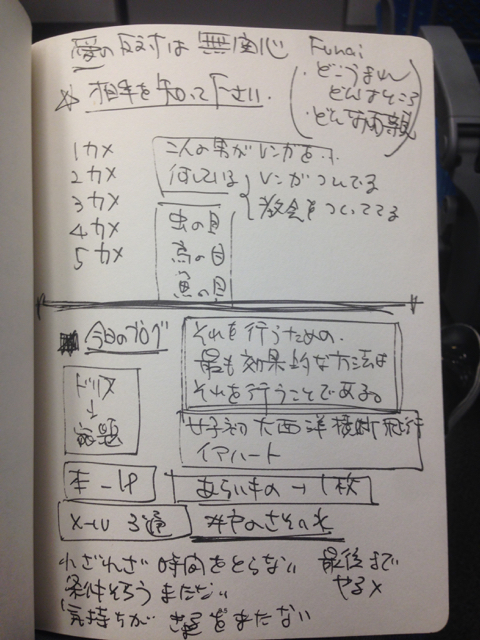 愛の反対は無関心 Funai
☆ 相手を知って下さい.
(・どこうまれ
どんなところ
・どんな両親)
1カメ
2カメ
3カメ
4カメ
5カメ
二人の男がレンガを
何している
レンガつんでる
教会をつくってる
虫の目
鳥の目
魚の目
今日のブログ
それを行うための.
最も効果的な方法は
それを行うことである。
ドリンス
↓
宿題
女子初 大西洋横断飛行
イアハート
本 - 1P
あらいもの → 1枚
メール 3通
わざわざ 時間をとらない
最後まで
やる×
条件そろうまたない
気持ちが
をまたない